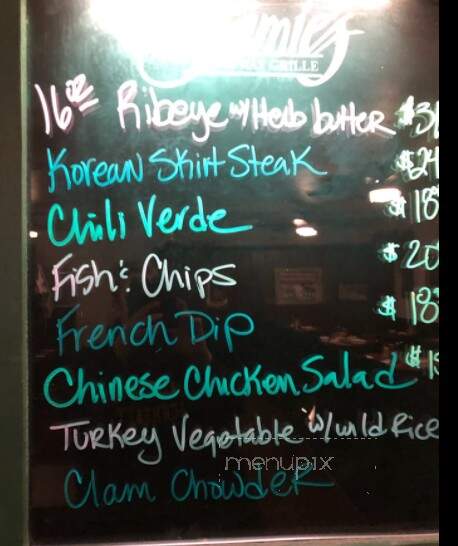 GRILLE
16oz Ribeye w/ Herb butter
Korean Skirt Steak $24
Chili Verde $18
Fish & Chips $20
French Dip $18
Chinese Chicken Salad
Turkey Vegetable w/ wild Rice
Clam Chowder
menupix